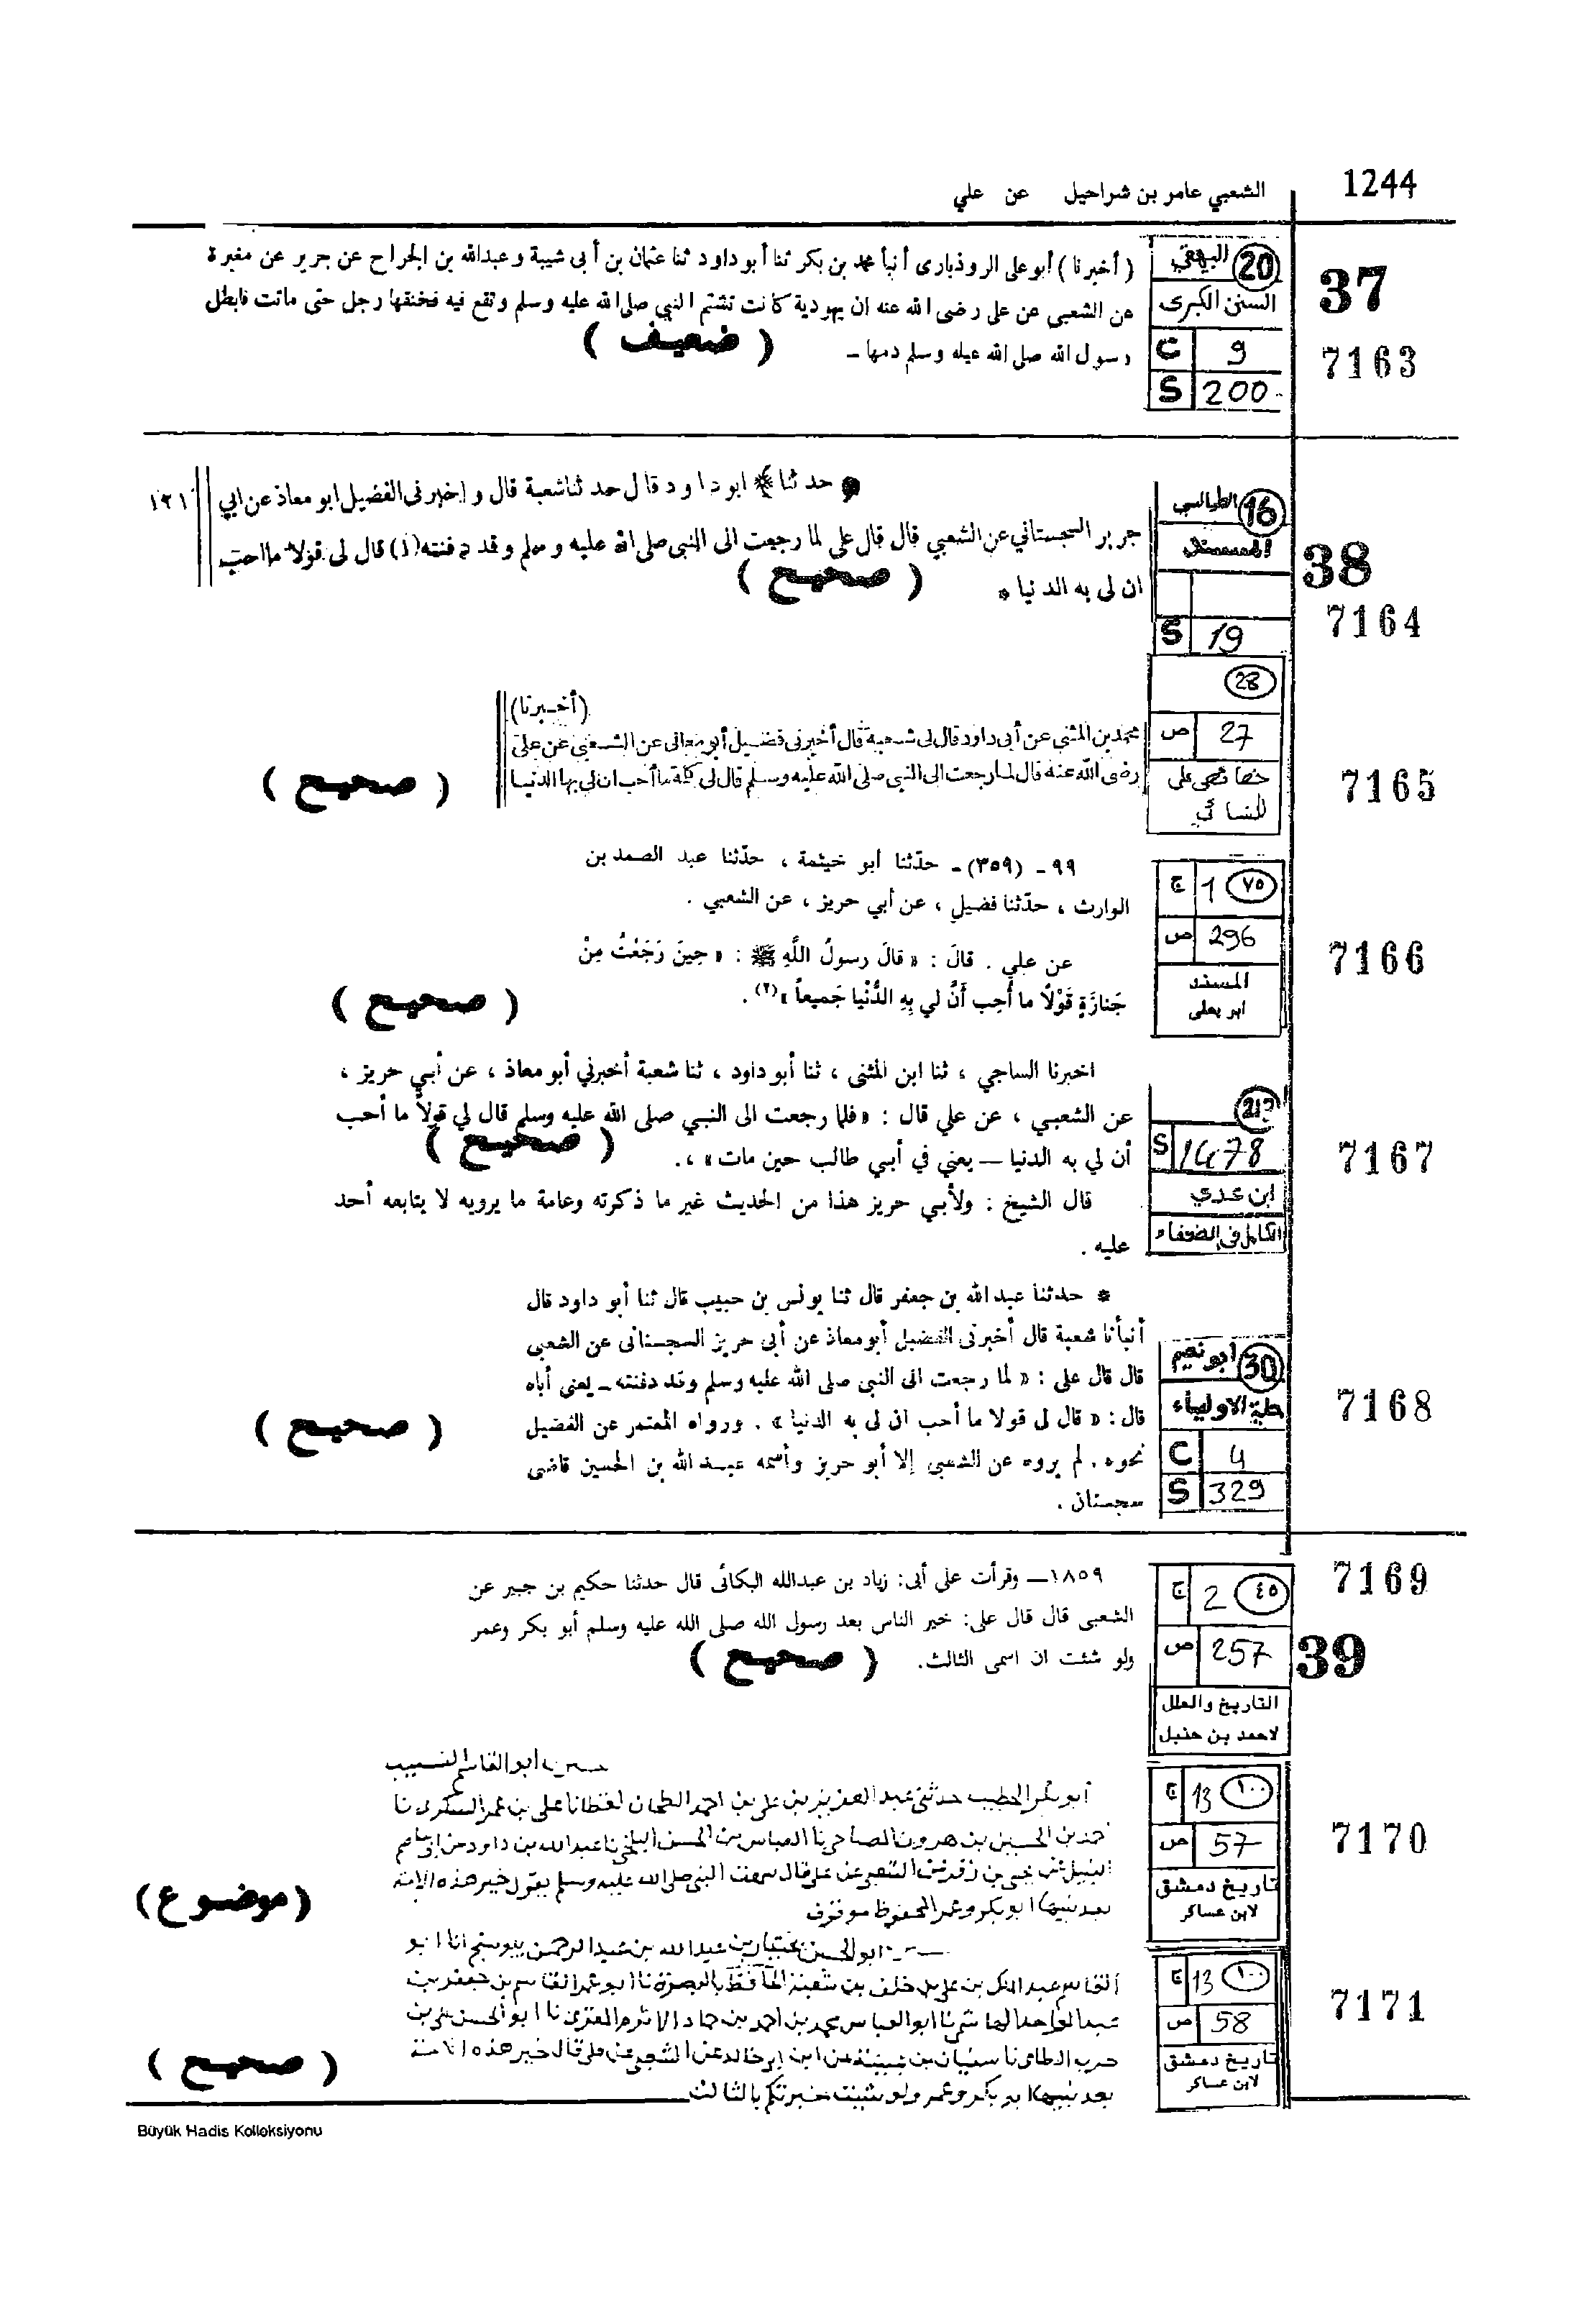 1244
الشعبي عامر بن شراحيل عن علي
37
7163
البيهقي 20
السنن الكبرى
C 9
S 200
( أخبرنا ) أبو على الروذبارى أنبأ محمد بن بكر ثنا أبو داود ثنا عثمان بن أبى شيبة وعبدالله بن الجراح عن جرير عن مغيرة
عن الشعبى عن على رضى الله عنه ان يهودية كانت تشتم النبي صلى الله عليه وسلم وتقع فيه فخنقها رجل حتى ماتت فابطل
رسول الله صلى الله عيله وسلم دمها -
( ضعيف )
38
7164
الطيالسي 16
المسند
S 19
حدثنا ابو داود قال حدثنا شعبة قال واخبرنى الفضيل ابو معاذ عن ابي ١٢١
جرير السجستاني عن الشعبي قال قال على لما رجعت الى النبى صلى الله عليه وسلم وقد دفنته (١) قال لى قولا ما احب
ان لى به الدنيا *
( صحيح )
7165
28
ص 27
خصائص على
للنسائي
(أخـبرنا)
محمد بن المثنى عن أبى داود قال لى شعبة قال أخبرنى فضيل أبو معاذ عن الشعبي عن على
رضى الله عنه قال لما رجعت الى النبي صلى الله عليه وسلم قال لى كلمة ما أحب ان لى بها الدنيا
( صحيح )
7166
ج 1 ٧٥
ص 296
المسند
ابو يعلى
٩٩ - (٣٥٩) - حدّثنا أبو خيثمة ، حدّثنا عبد الصمد بن
الوارث ، حدّثنا فضيل ، عن أبي حريز ، عن الشعبي .
عن علي . قالَ : « قالَ رسولُ اللَّهِ ﷺ : « حِينَ رَجَعْتُ مِنْ
جَنازَةٍ قَوْلًا ما أُحِب أَنَّ لي بِهِ الدُّنْيا جَميعاً »(٢) .
( صحيح )
7167
S 1478
ابن عدي
الكامل في الضعفاء
اخبرنا الساجي ، ثنا ابن المثنى ، ثنا أبو داود ، ثنا شعبة أخبرني أبو معاذ ، عن أبي حريز ،
عن الشعبي ، عن علي قال : « فلما رجعت الى النبي صلى الله عليه وسلم قال لي قولاً ما أحب
أن لي به الدنيا — يعني في أبي طالب حين مات » ،.
( صحيح )
قال الشيخ : ولأبي حريز هذا من الحديث غير ما ذكرته وعامة ما يرويه لا يتابعه أحد
عليه .
7168
ابو نعيم 30
حلية الاولياء
C 4
S 329
* حدثنا عبد الله بن جعفر قال ثنا يونس بن حبيب قال ثنا أبو داود قال
أنبأنا شعبة قال أخبرنى الفضيل أبو معاذ عن أبى حريز السجستانى عن الشعبى
قال قال على : « لما رجعت الى النبى صلى الله عليه وسلم وقد دفنته - يعنى أباه
قال : « قال لى قولا ما أحب ان لى به الدنيا » . ورواه المعتمر عن الفضيل
نحوه . لم يروه عن الشعبى إلا أبو حريز وأسمه عبـد الله بن الحسين قاضى
سجستان .
( صحيح )
7169
39
ج 2 ٤٥
ص 257
التاريخ والعلل
لاحمد بن حنبل
١٨٥٩ — وقرأت على أبى: زياد بن عبدالله البكائى قال حدثنا حكيم بن جبير عن
الشعبى قال قال على: خير الناس بعد رسول الله صلى الله عليه وسلم أبو بكر وعمر
ولو شئت ان اسمى الثالث.
( صحيح )
7170
ج 13 ١٠٠
ص 57
تاريخ دمشق
لابن عساكر
ابو القاسم النسيب
أبو بكر الخطيب حدثنى عبد العزيز بن على بن احمد الطحان لفظا نا على بن عمر السكرى نا
احمد بن الحسين بن هرون نا العباس بن الحسن البلخى نا عبد الله بن داود عن ابى عاصم
النبيل عن الشعبى عن على قال سمعت النبى صلى الله عليه وسلم يقول خير هذه الامة
بعد نبيها ابو بكر وعمر المحفوظ موقوف
(موضوع)
7171
ج 13 ١٠٠
ص 58
تاريخ دمشق
لابن عساكر
ابو الحسن بختيار بن عبد الله بن عبد الرحمن انا ابو
القاسم عبد الملك بن على بن خلف بن شعبة الحافظ بالبصرة نا ابو عمر القاسم بن جعفر بن
عبد الواحد الهاشمى نا ابو العباس محمد بن احمد بن حماد الاثرم المقرى نا ابو الحسن على بن
حرب الطائى نا سفيان بن عيينة عن ابن ابى خالد عن الشعبى عن على قال خير هذه الامة
بعد نبيها ابو بكر وعمر ولو شئت خبرتكم بالثالث
( صحيح )
Büyük Hadis Kolleksiyonu